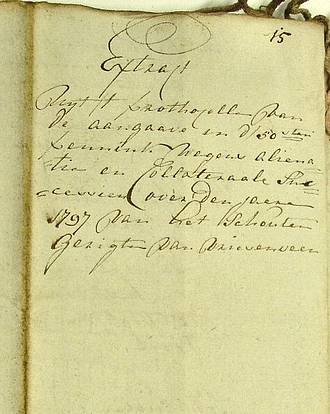 15
Extract
Uyt 't prothocollen van
de aangaave en d 50 sten
pennink wegens aliena
tie en Collateraale Suc
cessien over den jaare
1797 van het Schouten
Gerigte van Vriesenveen